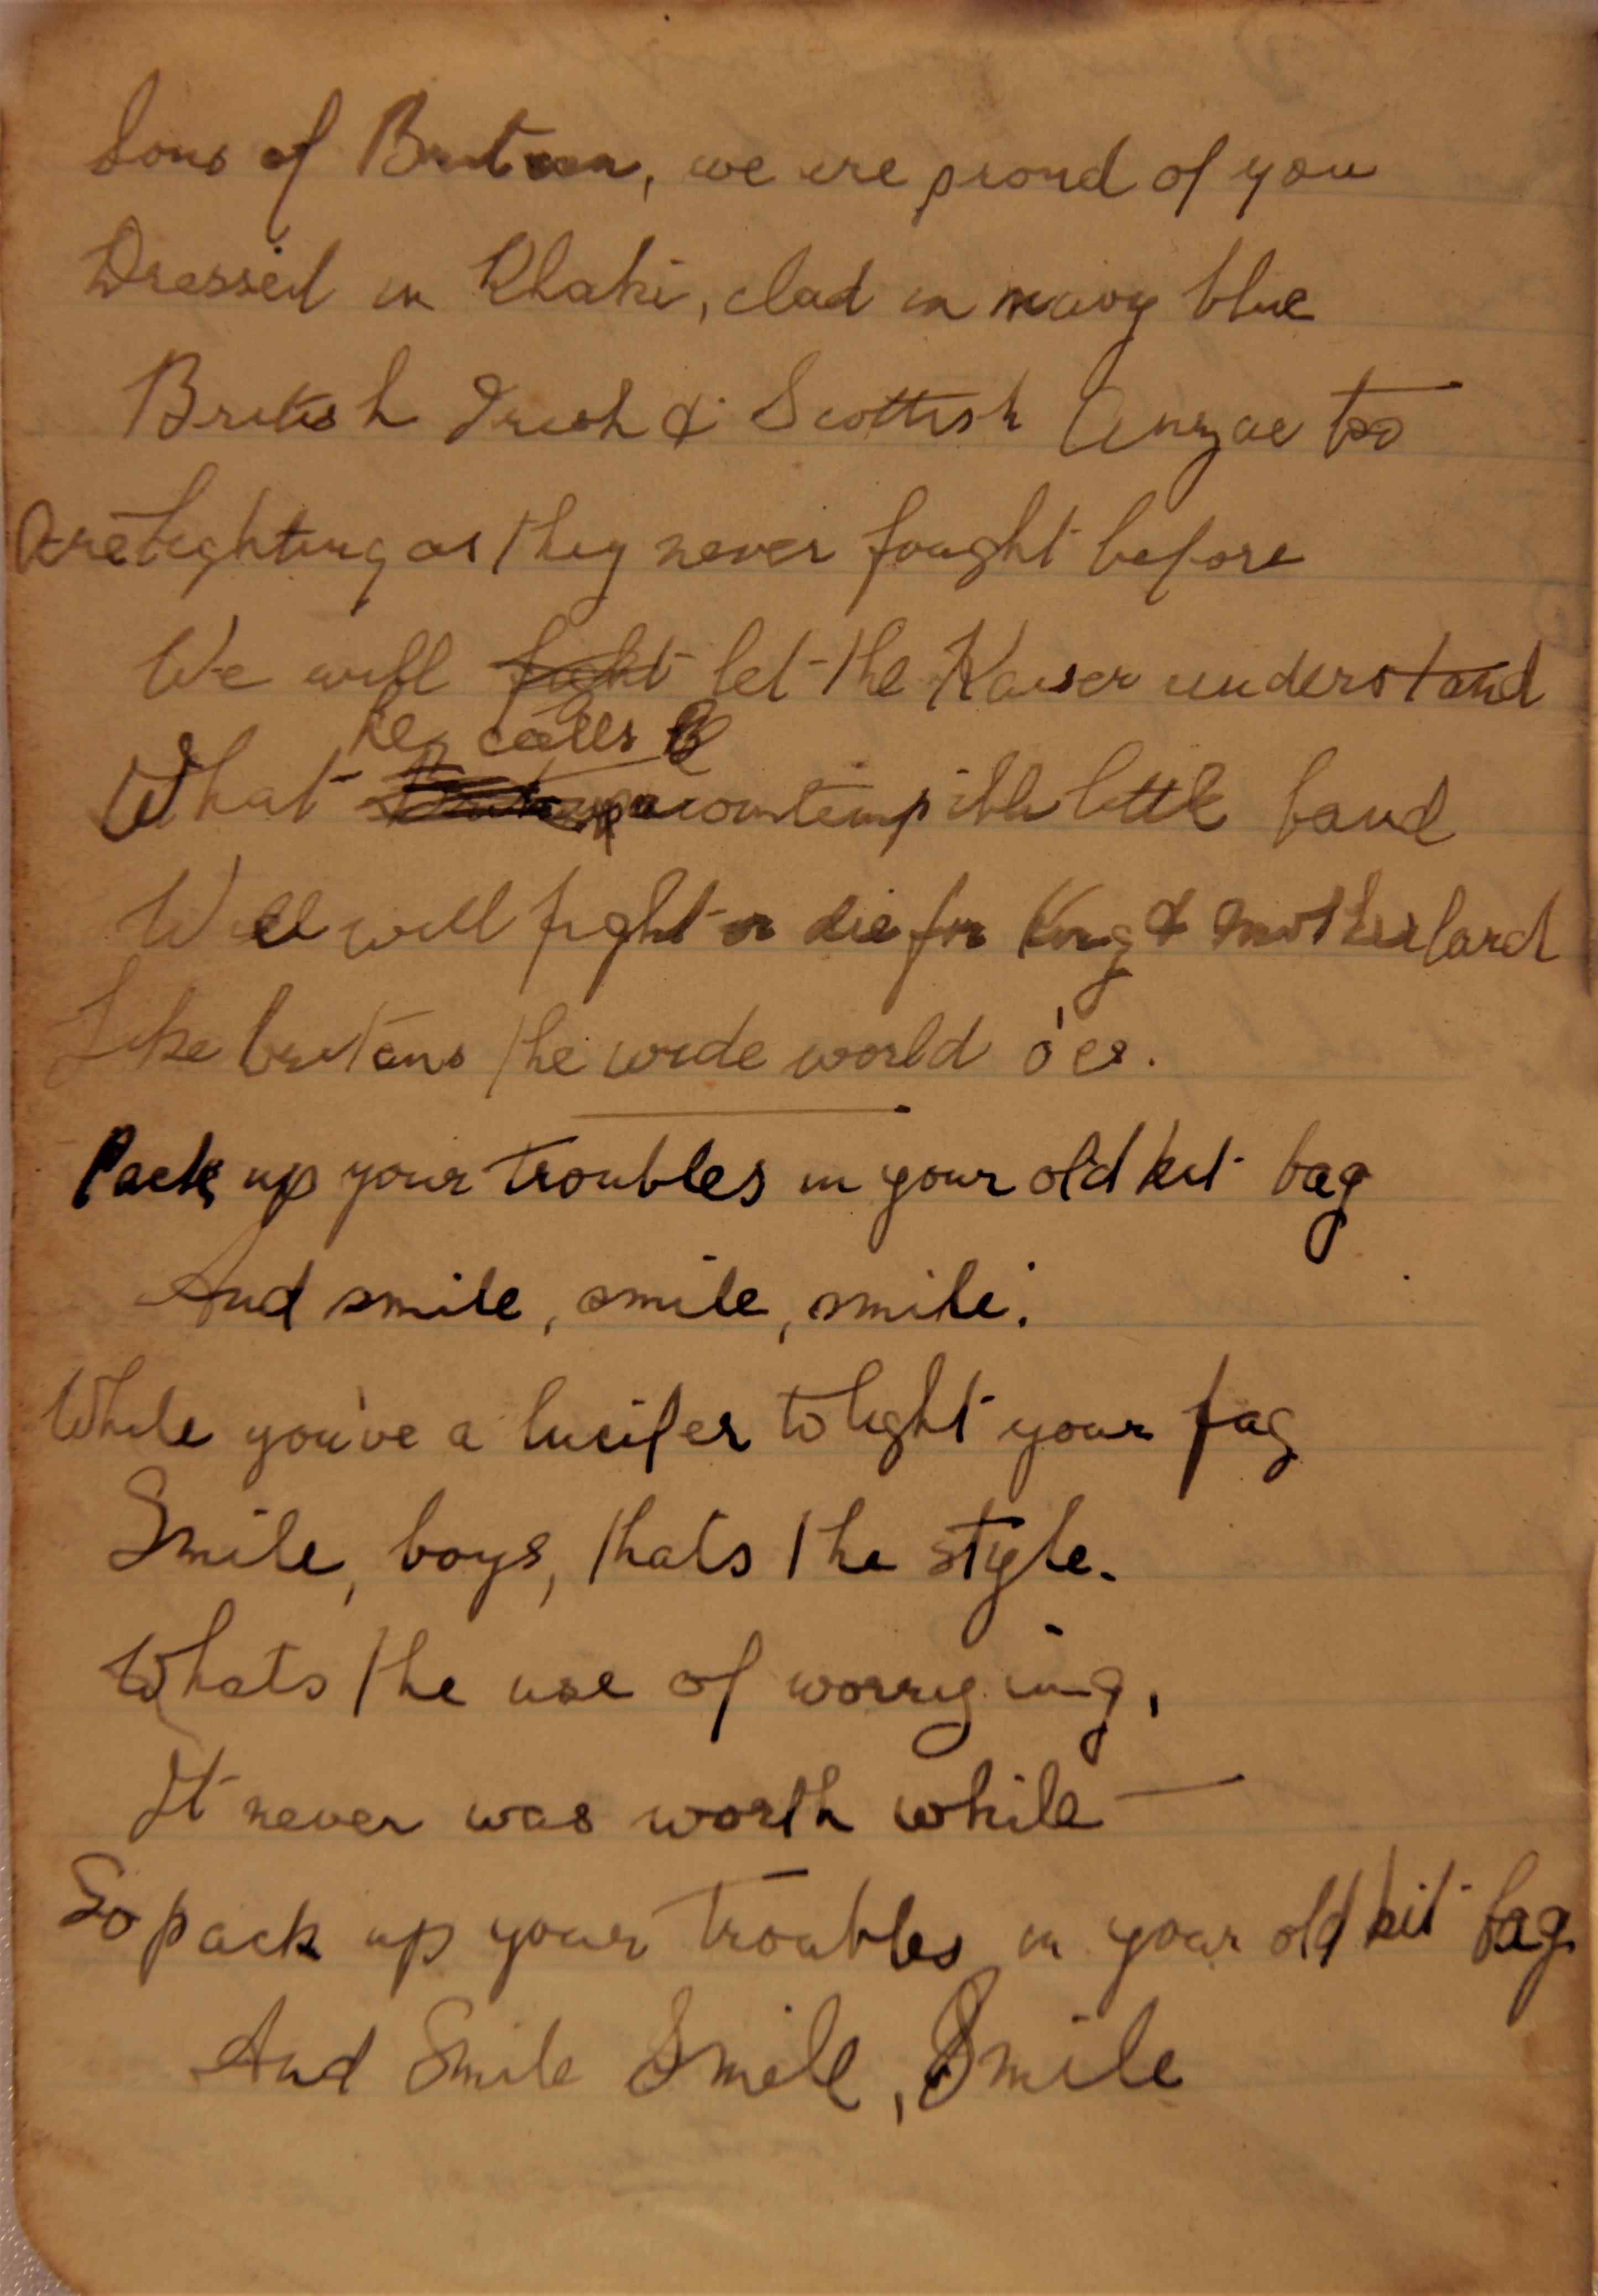 Sons of Britain, we are proud of you
Dressed in Khaki, clad in navy blue
British Irish & Scottish Anzac too
Are fighting as they never fought before
We will fight let the Kaiser understand
he calls
What a contemptible little band
We will fight or die for King & motherland
Like britons the wide world o'er.
Pack up your troubles in your old kit bag
And smile, smile, smile.
While you've a lucifer to light your fag
Smile, boys, thats the style.
Whats the use of worrying,
It never was worth while —
So pack up your troubles in your old kit bag
And Smile Smile, Smile